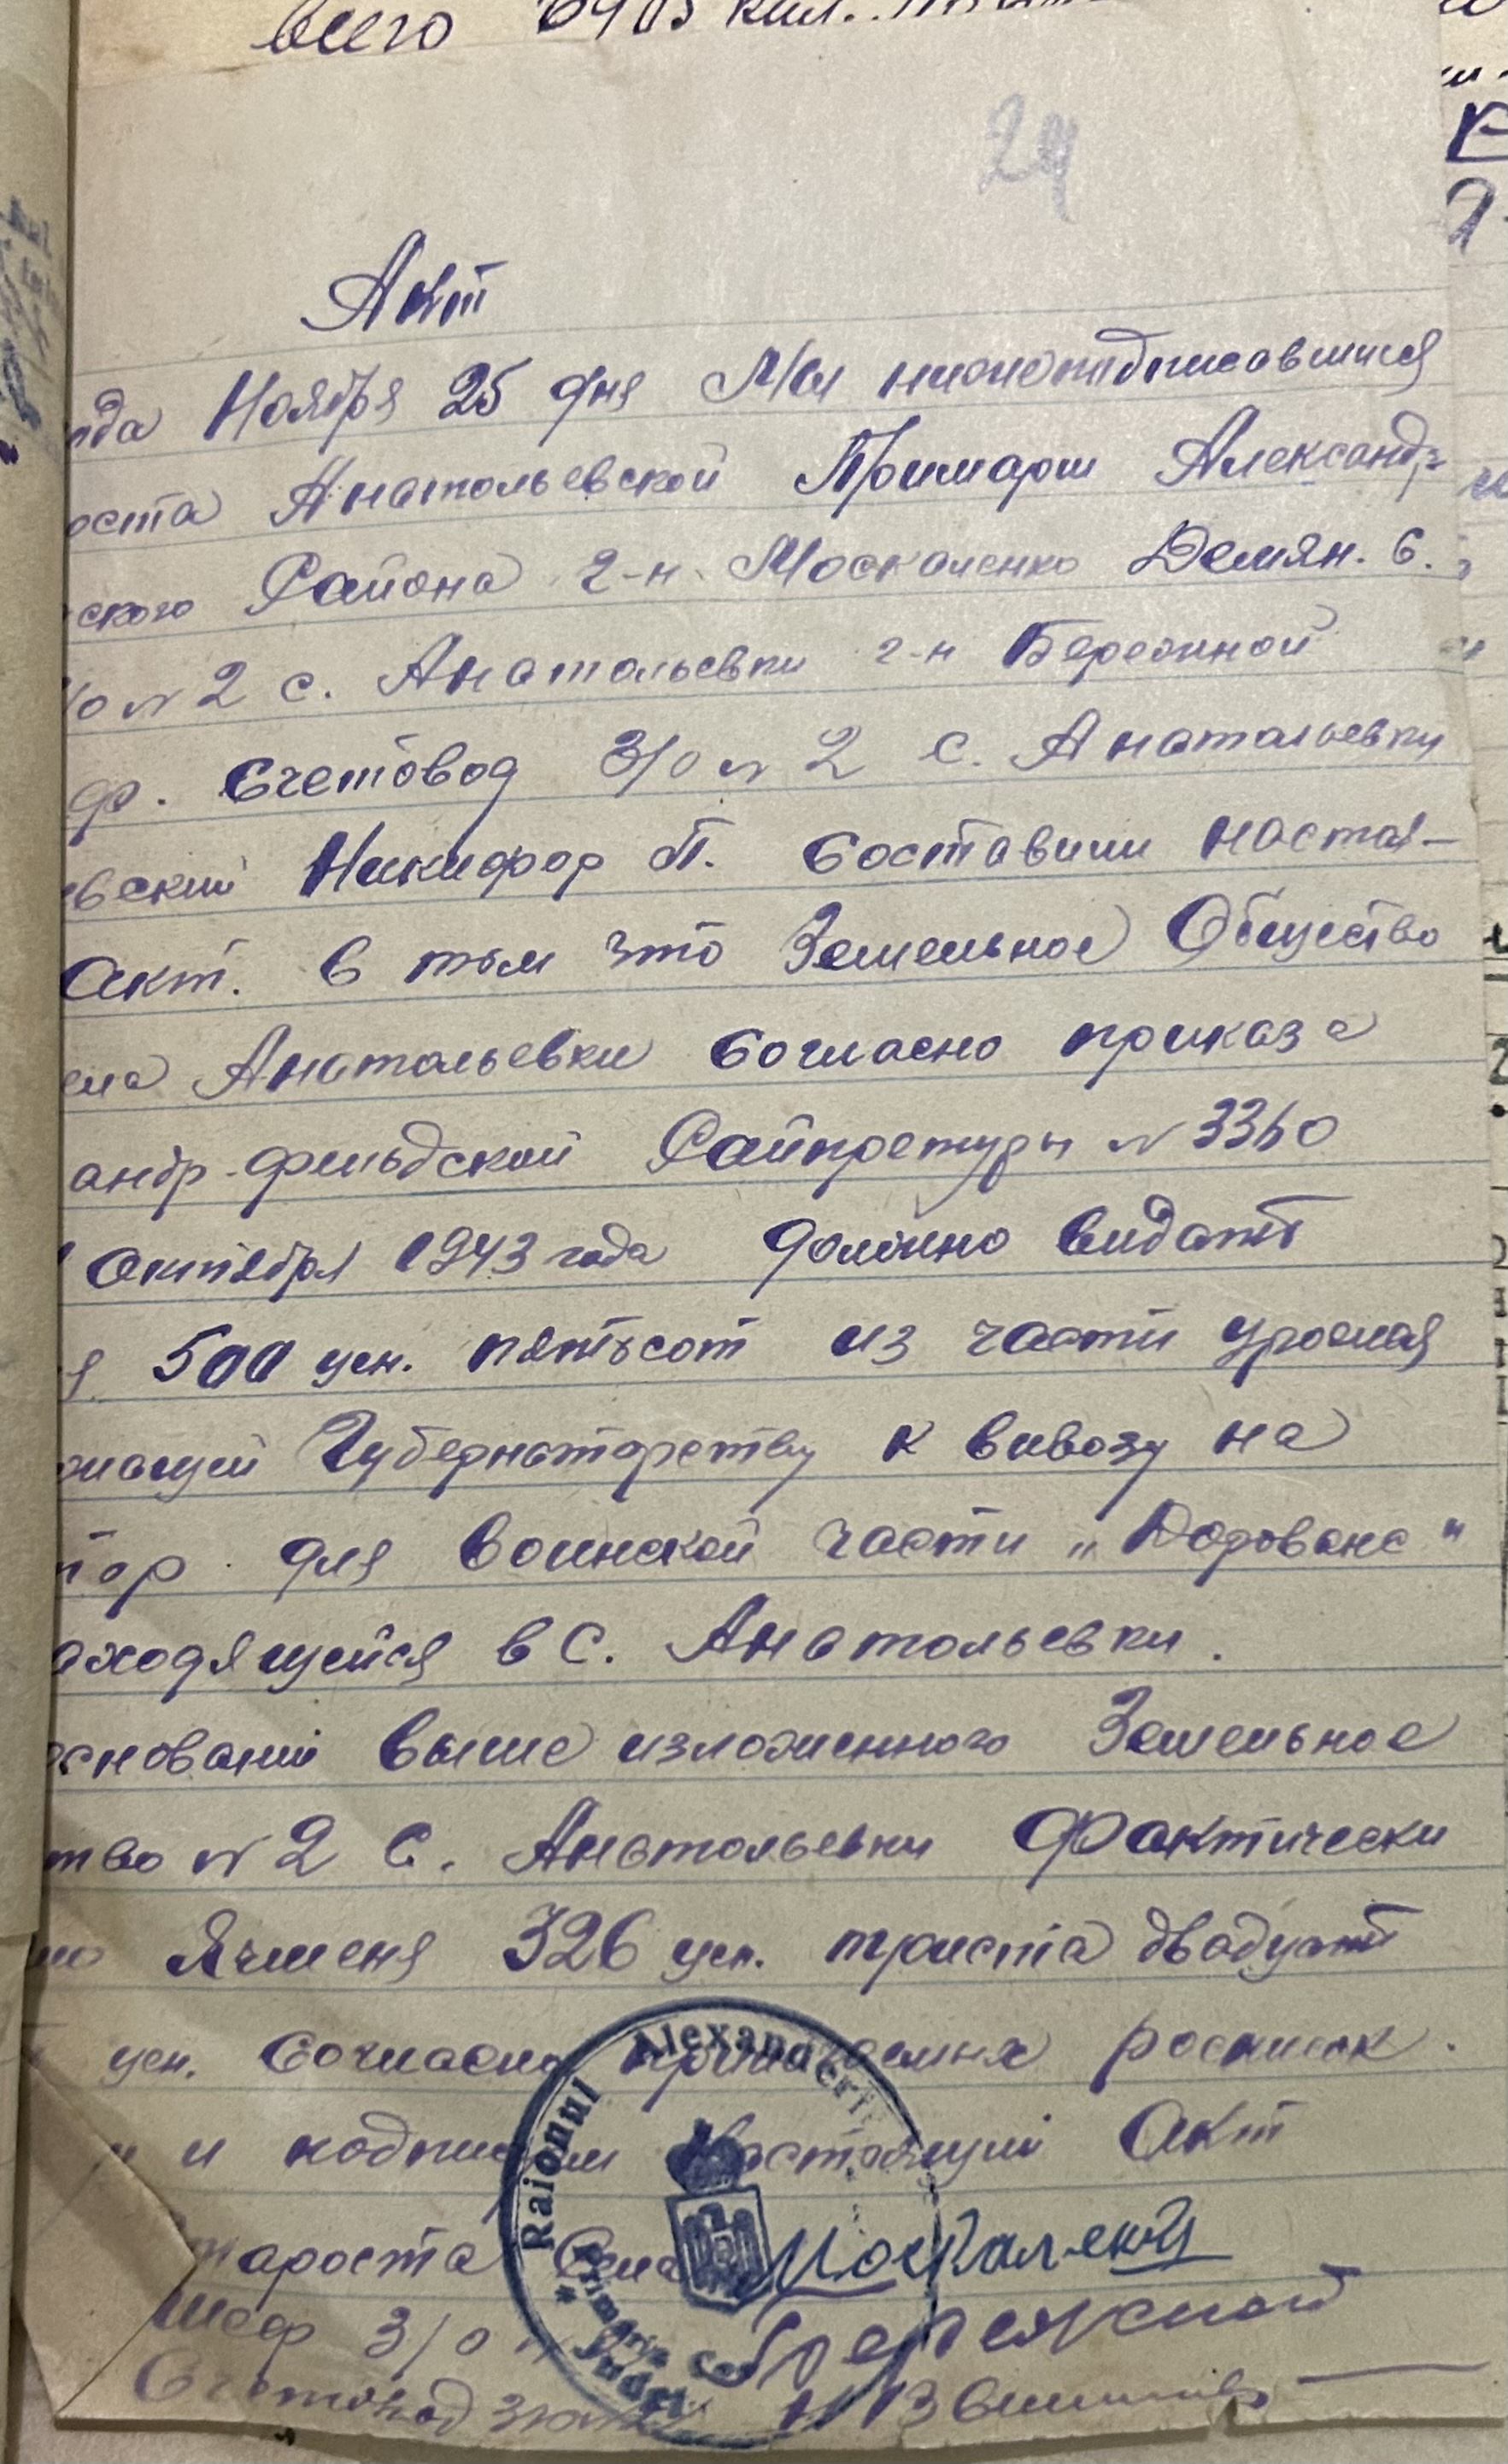 всего
24
Акт
ода Ноября 25 дня Мы нижеподписавшиеся
оста Анатольевской Примарии Александр
ского Района г-н Москаленко Демян. С.
/о № 2 с. Анатольевки г-н Бережной
ф. Счетовод З/о № 2 с. Анатальевки
вский Никифор П. Составили настоя-
Акт. в том что Земельное Общество
ела Анатольевки Согласно приказа
андр-фельдской Райпретуры № 3360
Октября 1943 года должно видать
я 500 цен. пятьсот из части урожая
жащей Губернаторству к вивозу на
тор для Воинской части „Дорованс"
аходящейся в С. Анатольевки.
основаній выше изложенного Земельное
тво № 2 С. Анатольевки Фактически
но Ячменя 326 цен. триста двадцат
цен. Согласно росписок.
и и подписы настоящий Акт
тароста Села Москаленко
Шеф З/о Бережной
Счетовод
Raionul Alexanderfeld
Primăria